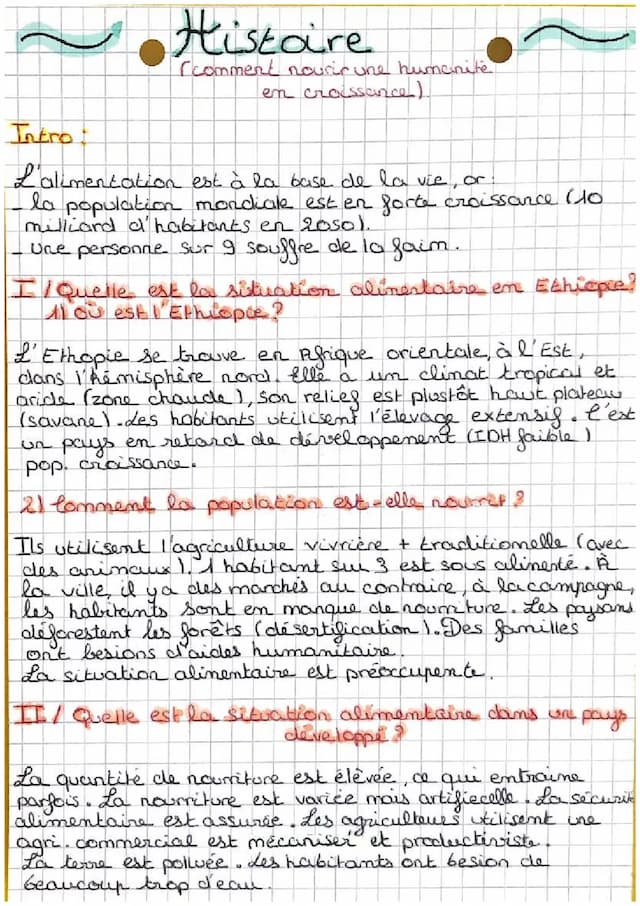 Histoire
(comment nourir une humanité
en croissance)
Intro :
L'alimentation est à la base de la vie, or :
- la population mondiale est en forte croissance (10
milliard d'habitants en 2050).
- une personne sur 9 souffre de la faim.
I / Quelle est la situation alimentaire en Ethiopie?
1) où est l'Ethiopie?
L'Ethopie se trouve en Afrique orientale, à l'Est,
dans l'hémisphère nord. Elle a un climat tropical et
aride (zone chaude), son relief est plustôt haut plateau
(savane). Les habitants utilisent l'élevage extensif. C'est
un pays en retard de développement (IDH faible)
pop. croissance.
2) Comment la population est-elle nourrit ?
Ils utilisent l'agriculture vivrière + traditionelle (avec
des animaux). 1 habitant sur 3 est sous alimenté. À
la ville, il y a des marchés au contraire, à la campagne,
les habitants sont en manque de nourriture. Les paysans
déforestent les forêts (désertification). Des familles
ont besions d'aides humanitaire.
La situation alimentaire est préoccupente.
II / Quelle est la situation alimentaire dans un pays
développé ?
La quantité de nourriture est élèvée, ce qui entraine
parfois. La nourriture est variée mais artifiecelle. La sécurité
alimentaire est assurée. Les agriculteurs utilisent une
agri. commercial est mécaniser et productiviste.
La terre est polluée. Les habitants ont besion de
beaucoup trop d'eau.